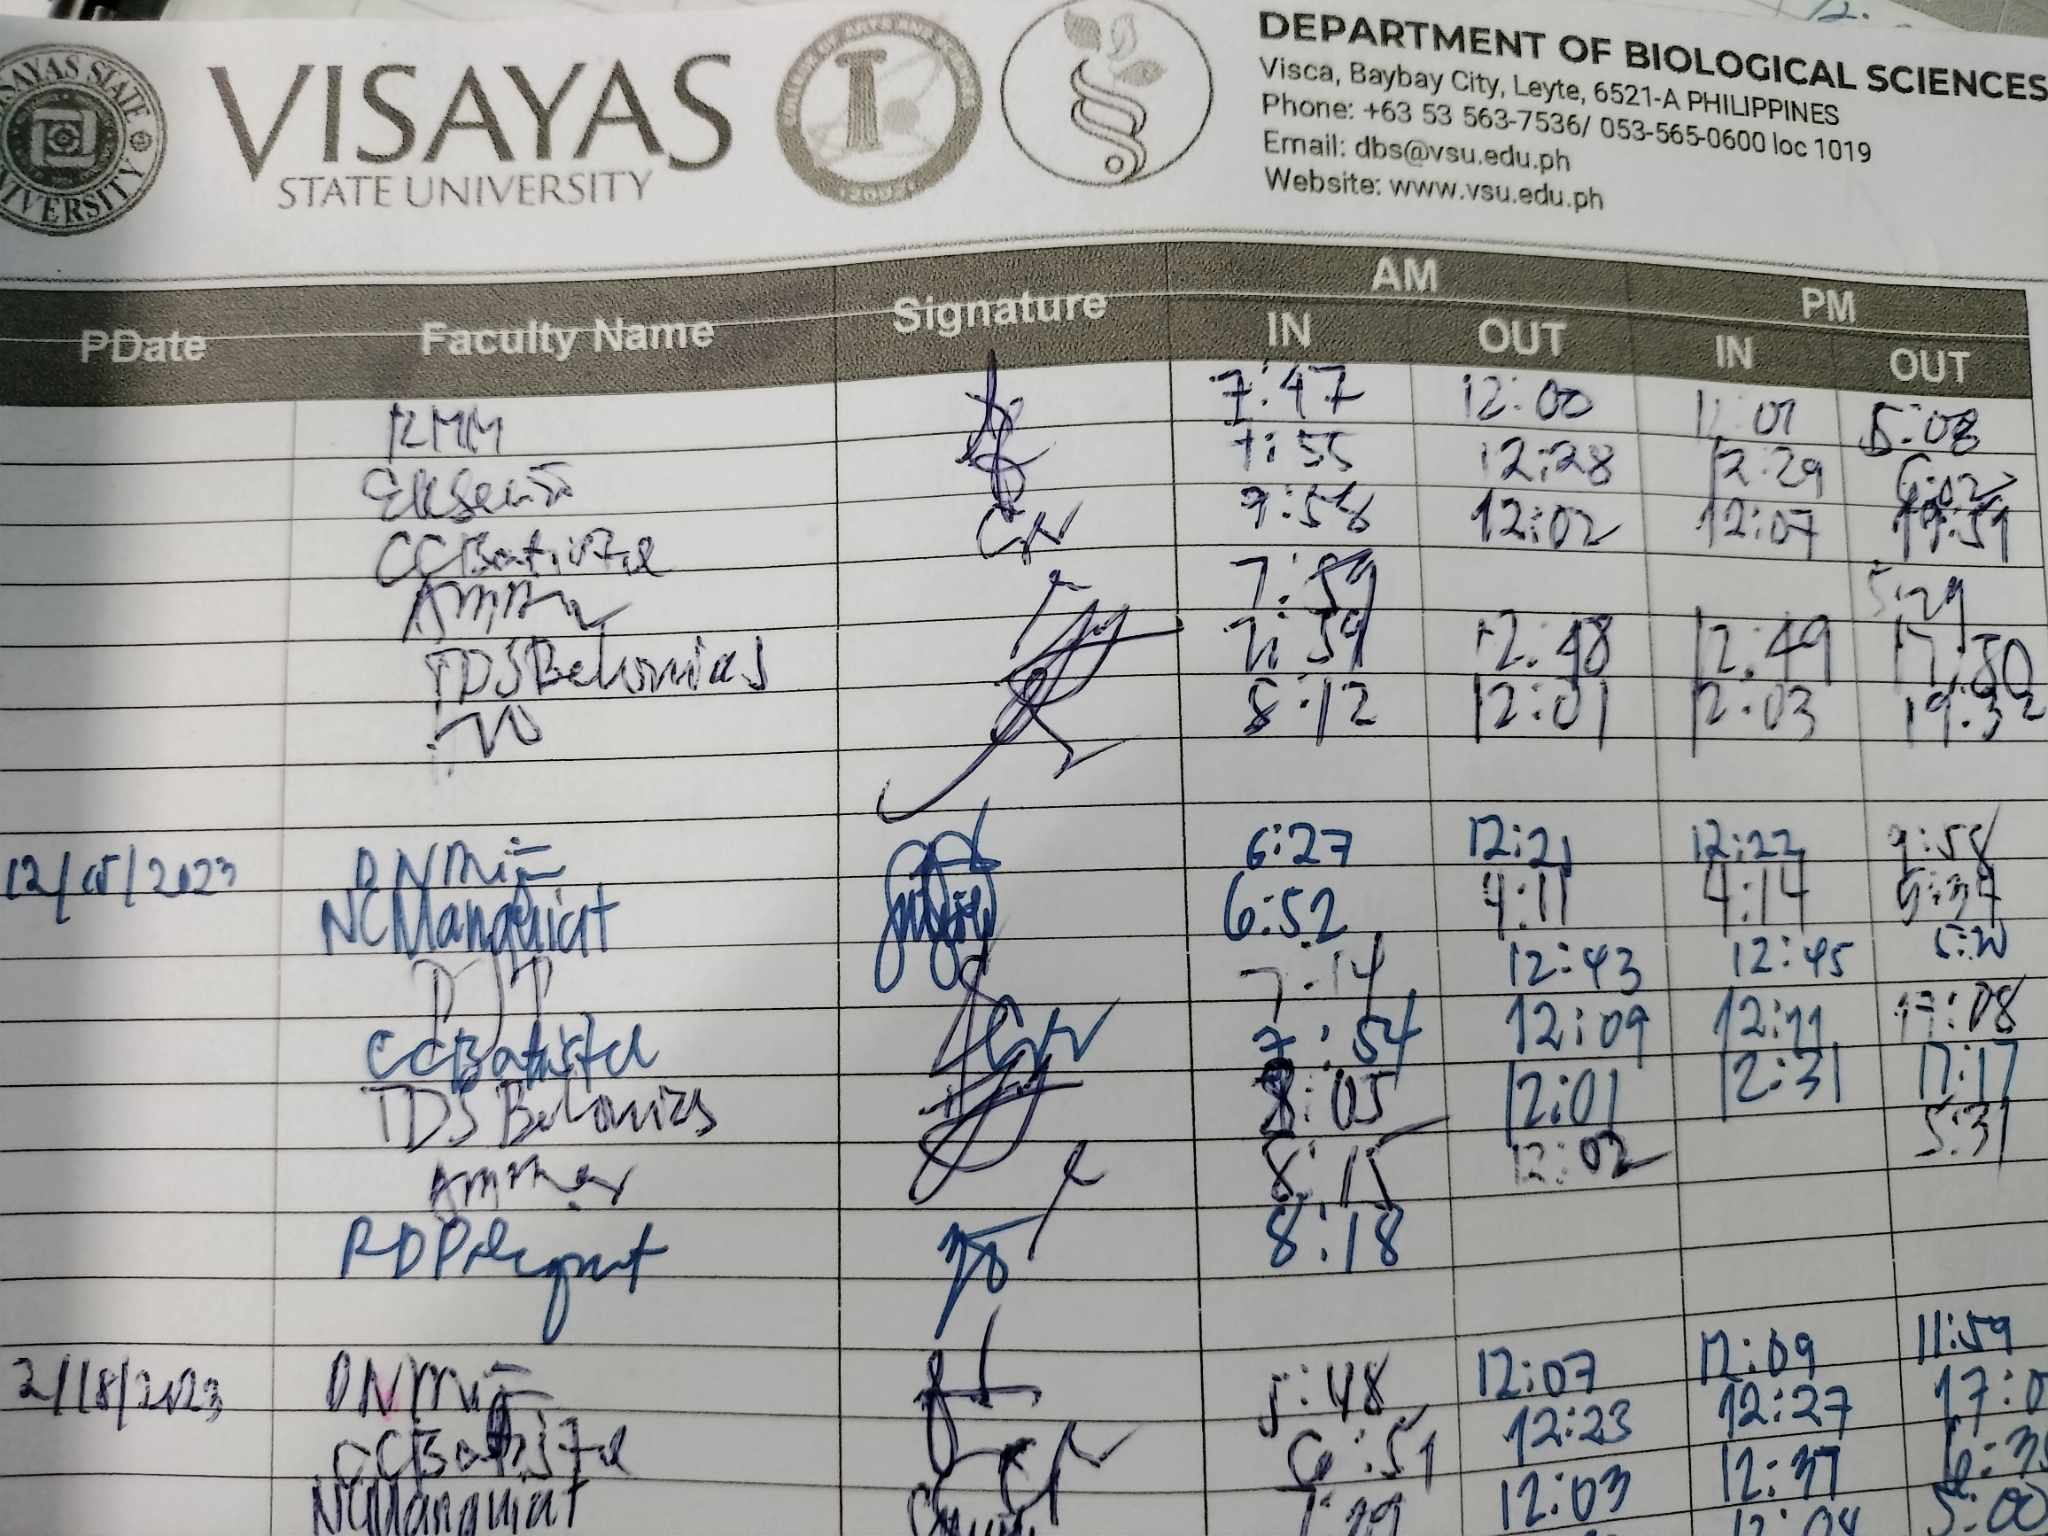 VISAYAS
STATE UNIVERSITY
DEPARTMENT OF BIOLOGICAL SCIENCES
Visca, Baybay City, Leyte, 6521-A PHILIPPINES
Phone: +63 53 563-7536/ 053-565-0600 loc 1019
Email: dbs@vsu.edu.ph
Website: www.vsu.edu.ph
PDate Faculty Name Signature AM PM
IN OUT IN OUT
RMM 7:47 12:00 5:08
7:55 12:28 12:29 6:02
CCBatista 7:58 12:02 12:07
7:59 5:29
TDSBelonias 7:59 12:48 12:49
8:12 12:01 12:03 19:32
12/15/2023 6:27 12:21 12:22 9:58
NCMangquiat 6:52 4:11 4:14 5:37
7:14 12:43 12:45 5:20
CCBatista 7:54 12:09 12:11 17:08
TDSBelonias 8:05 12:01 12:31 17:17
8:15 12:02 5:31
8:18
2/18/2023 5:48 12:07 12:09 11:59
CCBatista 6:51 12:23 12:27 17:0
NCMangquiat 12:03 12:37 6:3
5:00